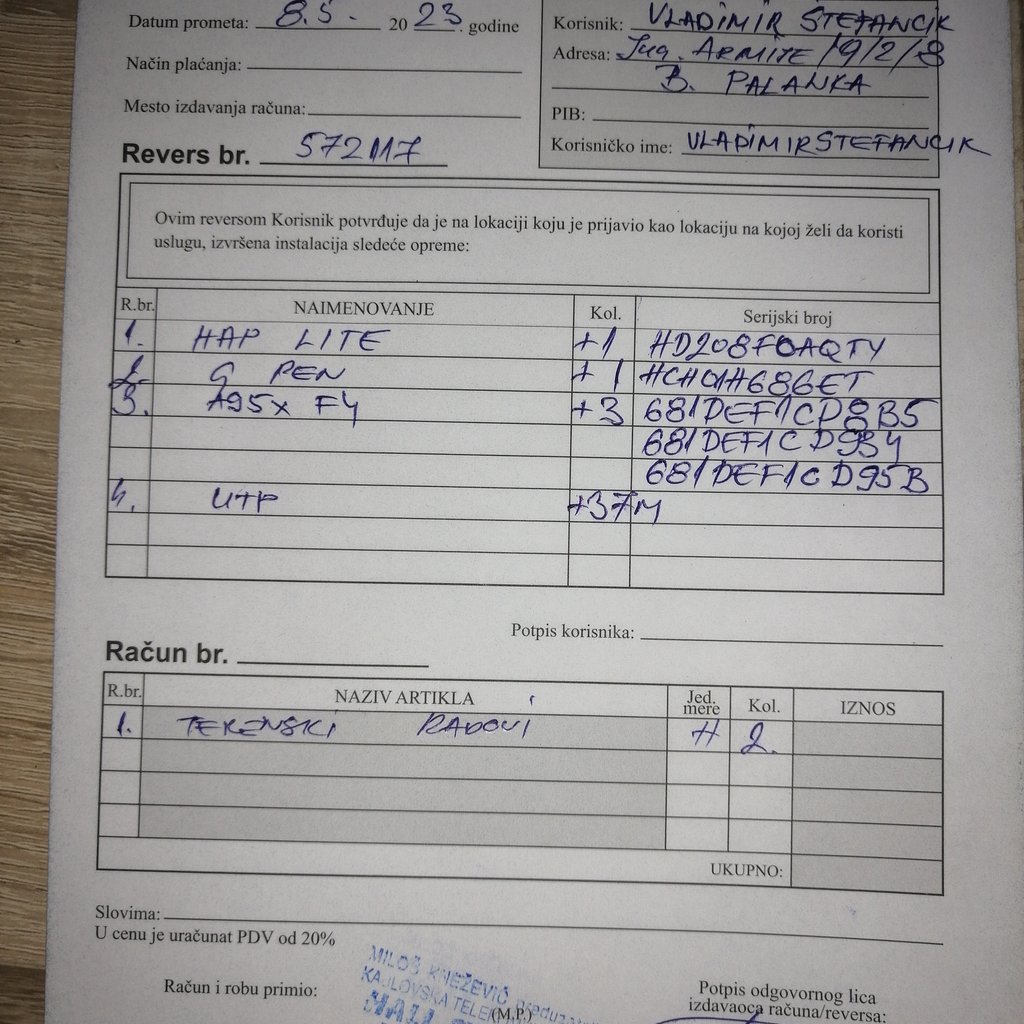 Datum prometa: 8.5. 20 23. godine
Način plaćanja:
Mesto izdavanja računa:
Korisnik: VLADIMIR STEFANCIK
Adresa: Jug. ARMIJE 19/2/8
B. PALANKA
PIB:
Korisničko ime: VLADIMIRSTEFANCIK
Revers br. 572117
Ovim reversom Korisnik potvrđuje da je na lokaciji koju je prijavio kao lokaciju na kojoj želi da koristi
uslugu, izvršena instalacija sledeće opreme:
R.br. NAIMENOVANJE Kol. Serijski broj
1. HAP LITE +1 HD208FOAQTY
2. G PEN +1 HCH01H686ET
3. A95X F4 +3 681DEF1CD8B5
681DEF1CD9B4
681DEF1CD95B
4. UTP +37M
Potpis korisnika:
Račun br.
R.br. NAZIV ARTIKLA Jed. mere Kol. IZNOS
1. TERENSKI RADOVI H 2.
UKUPNO:
Slovima:
U cenu je uračunat PDV od 20%
Račun i robu primio:
MILOŠ KNEŽEVIĆ
(M.P.)
Potpis odgovornog lica
izdavaoca računa/reversa: